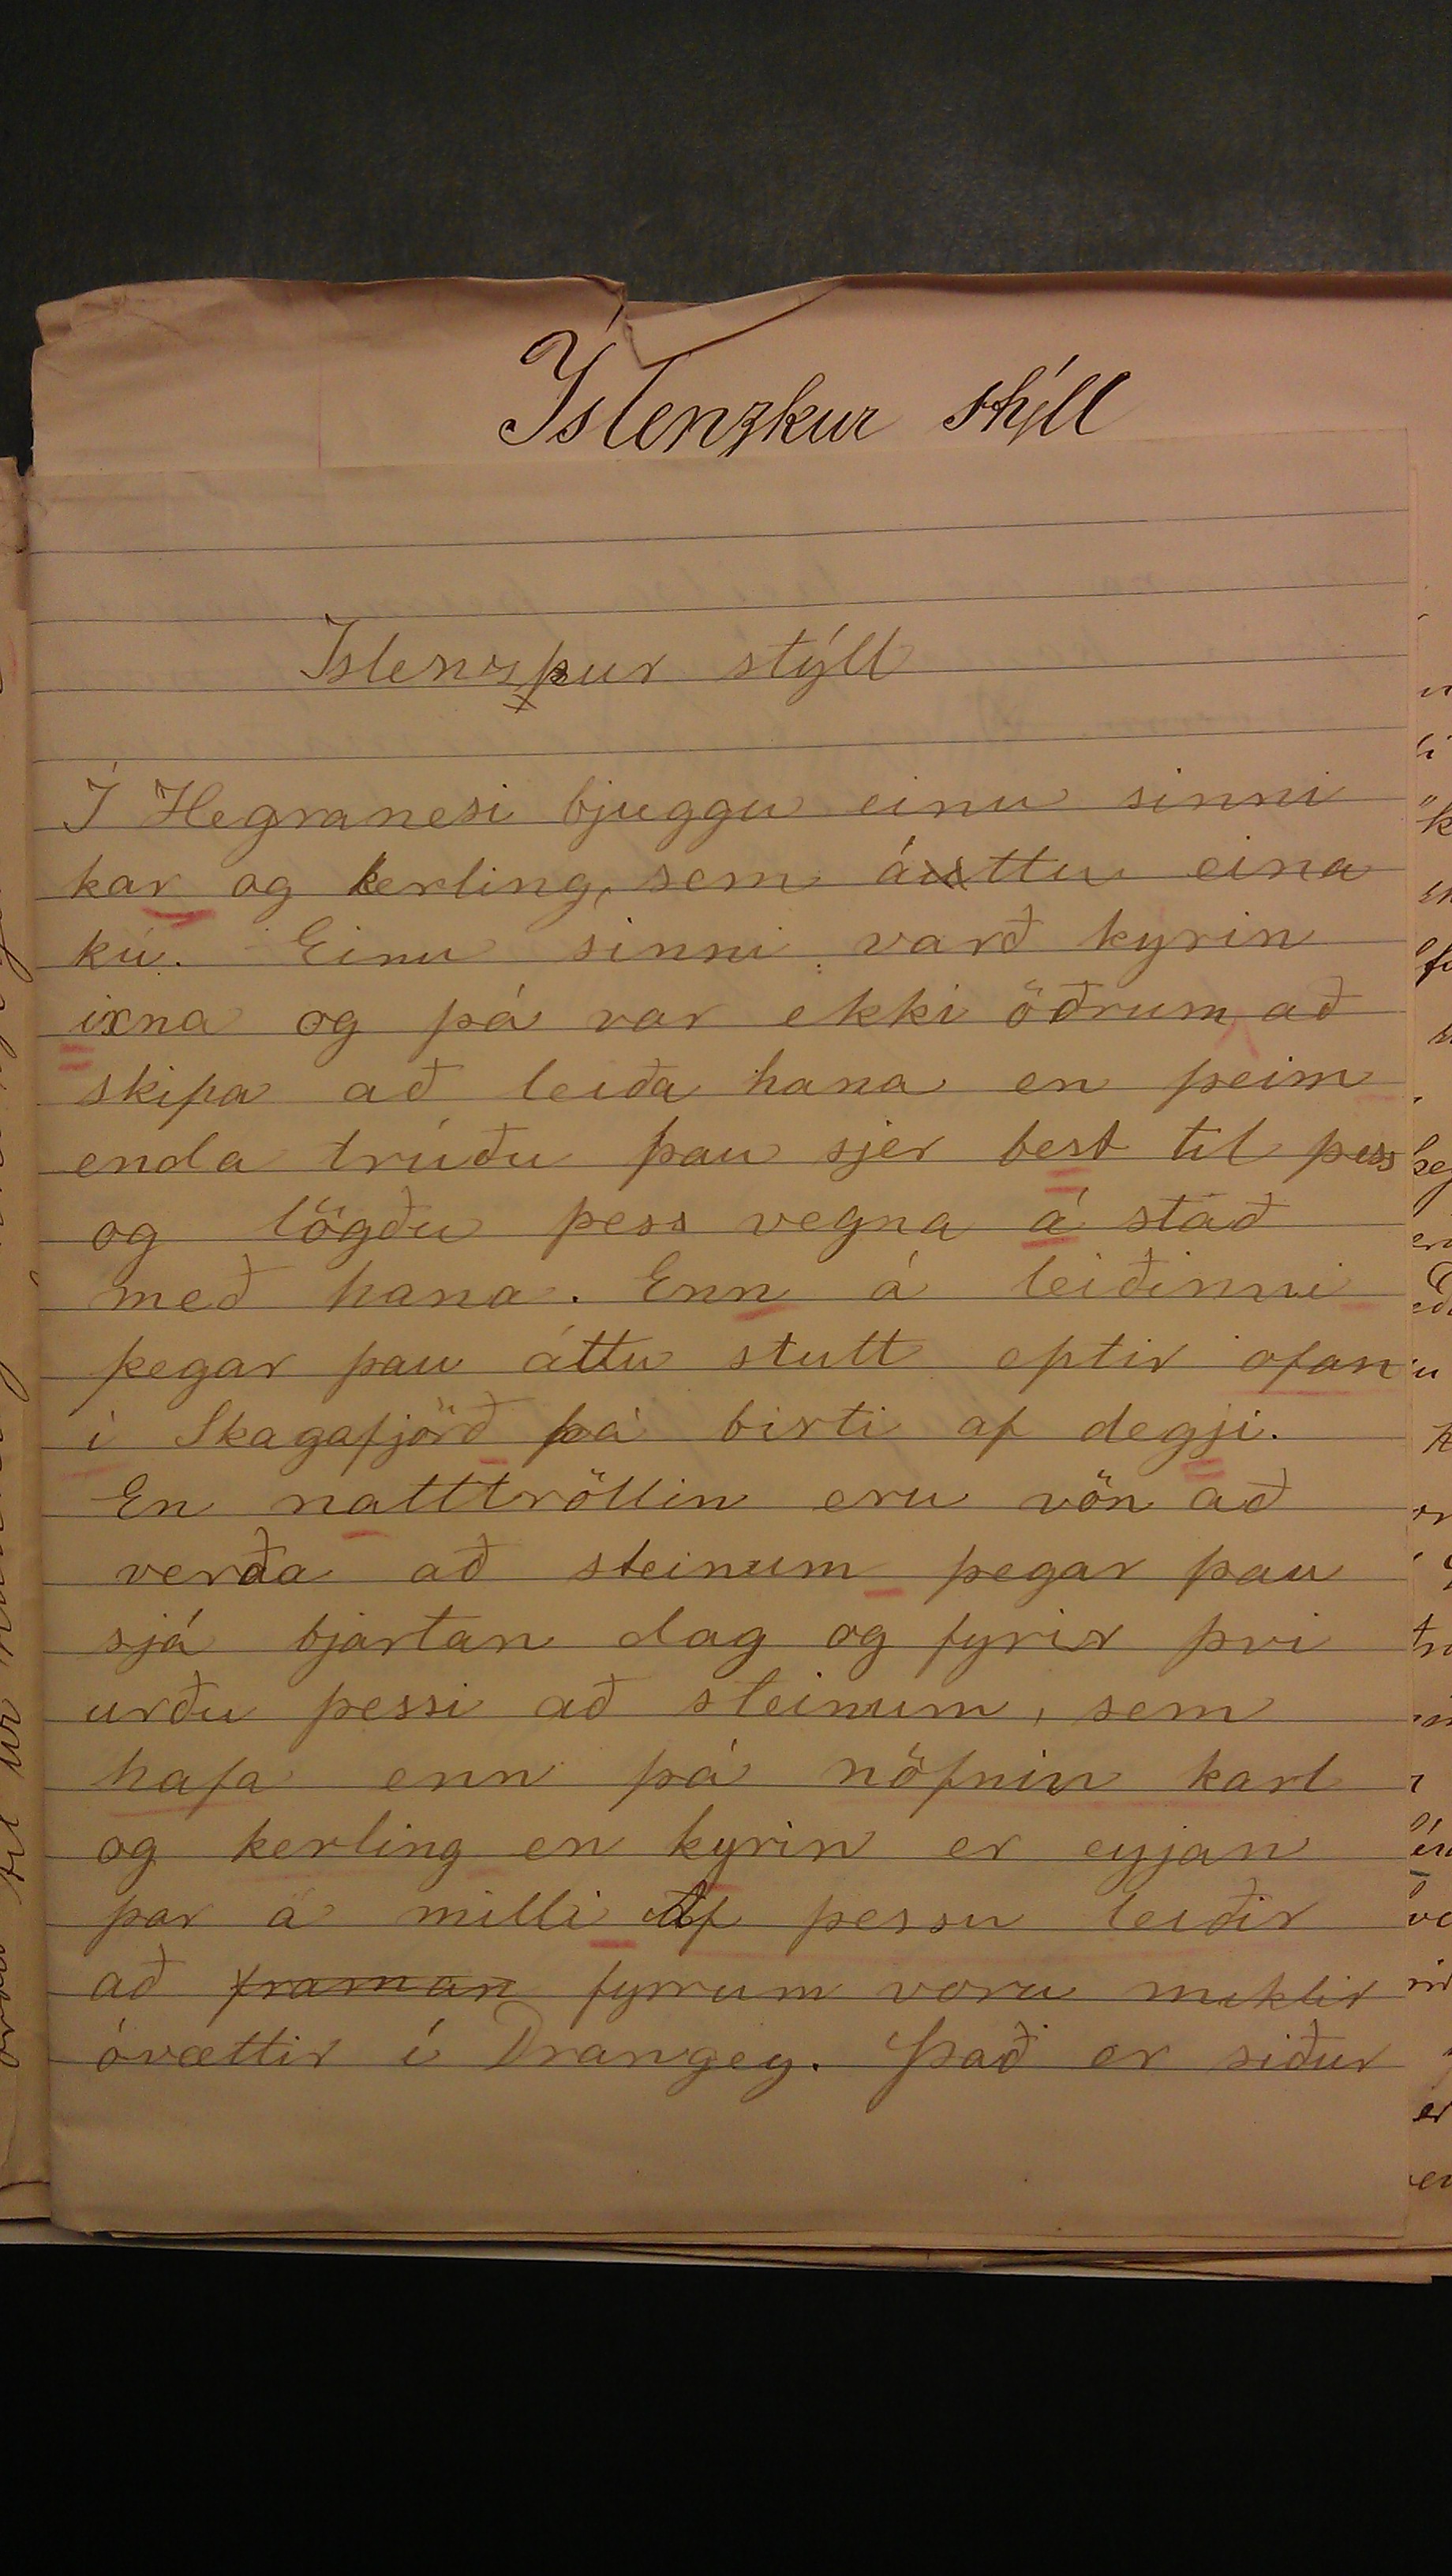 Íslenzkur stýll
Islenzkur stýll
Í Hegranesi bjuggu einu sinni
kar og kerling, sem áttu eina
kú. Einu sinni varð kyrin
ixna og þá var ekki öðrum að
skipa að leiða hana en þeim
enda trúðu þau sjer best til þess
og lögðu þess vegna á stað
með hana. Enn á leiðinni
þegar þau áttu stutt eptir ofan
i Skagafjörð þá birti af degji.
En natttröllin eru vön að
verða að steinum þegar þau
sjá bjartan dag og fyrir þvi
urðu þessi að steinum, sem
hafa enn þá nöfnin karl
og kerling en kyrin er eyjan
þar á milli Af þessu leiðir
að framan fyrrum voru miklir
óvættir í Drangey. Það er siður